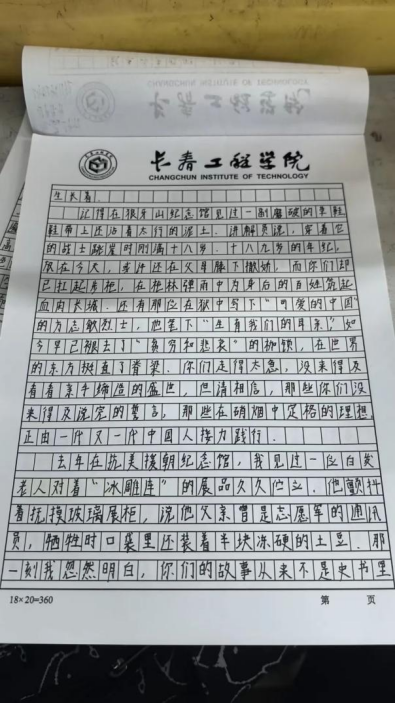 长春工程学院
CHANGCHUN INSTITUTE OF TECHNOLOGY
生长着.
记得在狼牙山纪念馆见过一副磨破的草鞋
鞋带上还沾着太行的泥土。讲解员说,穿着它
的战士踏崖时刚满十八岁。十八九岁的年纪,
放在今天,或许还在父母膝下撒娇,而你们却
已扛起房把,在枪林弹雨中为身后的百姓筑起
血肉长城。还有那位在狱中写下“可爱的中国”
的方志敏烈士,他笔下“生育我们的母亲”,如
今早已褪去了“贫穷和悲哀”的枷锁,在世界
的东方挺直了脊梁。你们走得太急,没来得及
看看亲手缔造的盛世,但请相信,那些你们没
来得及说完的誓言,那些在硝烟中定格的理想,
正由一代又一代中国人接力践行.
去年在抗美援朝纪念馆,我见过一位白发
老人对着“冰雕连”的展品久久伫立。他颤抖
着抚摸玻璃展柜,说他父亲曾是志愿军的通讯
员,牺牲时口袋里还装着半块冻硬的土豆。那
一刻我忽然明白,你们的故事从来不是史书里
18×20=360 第 页